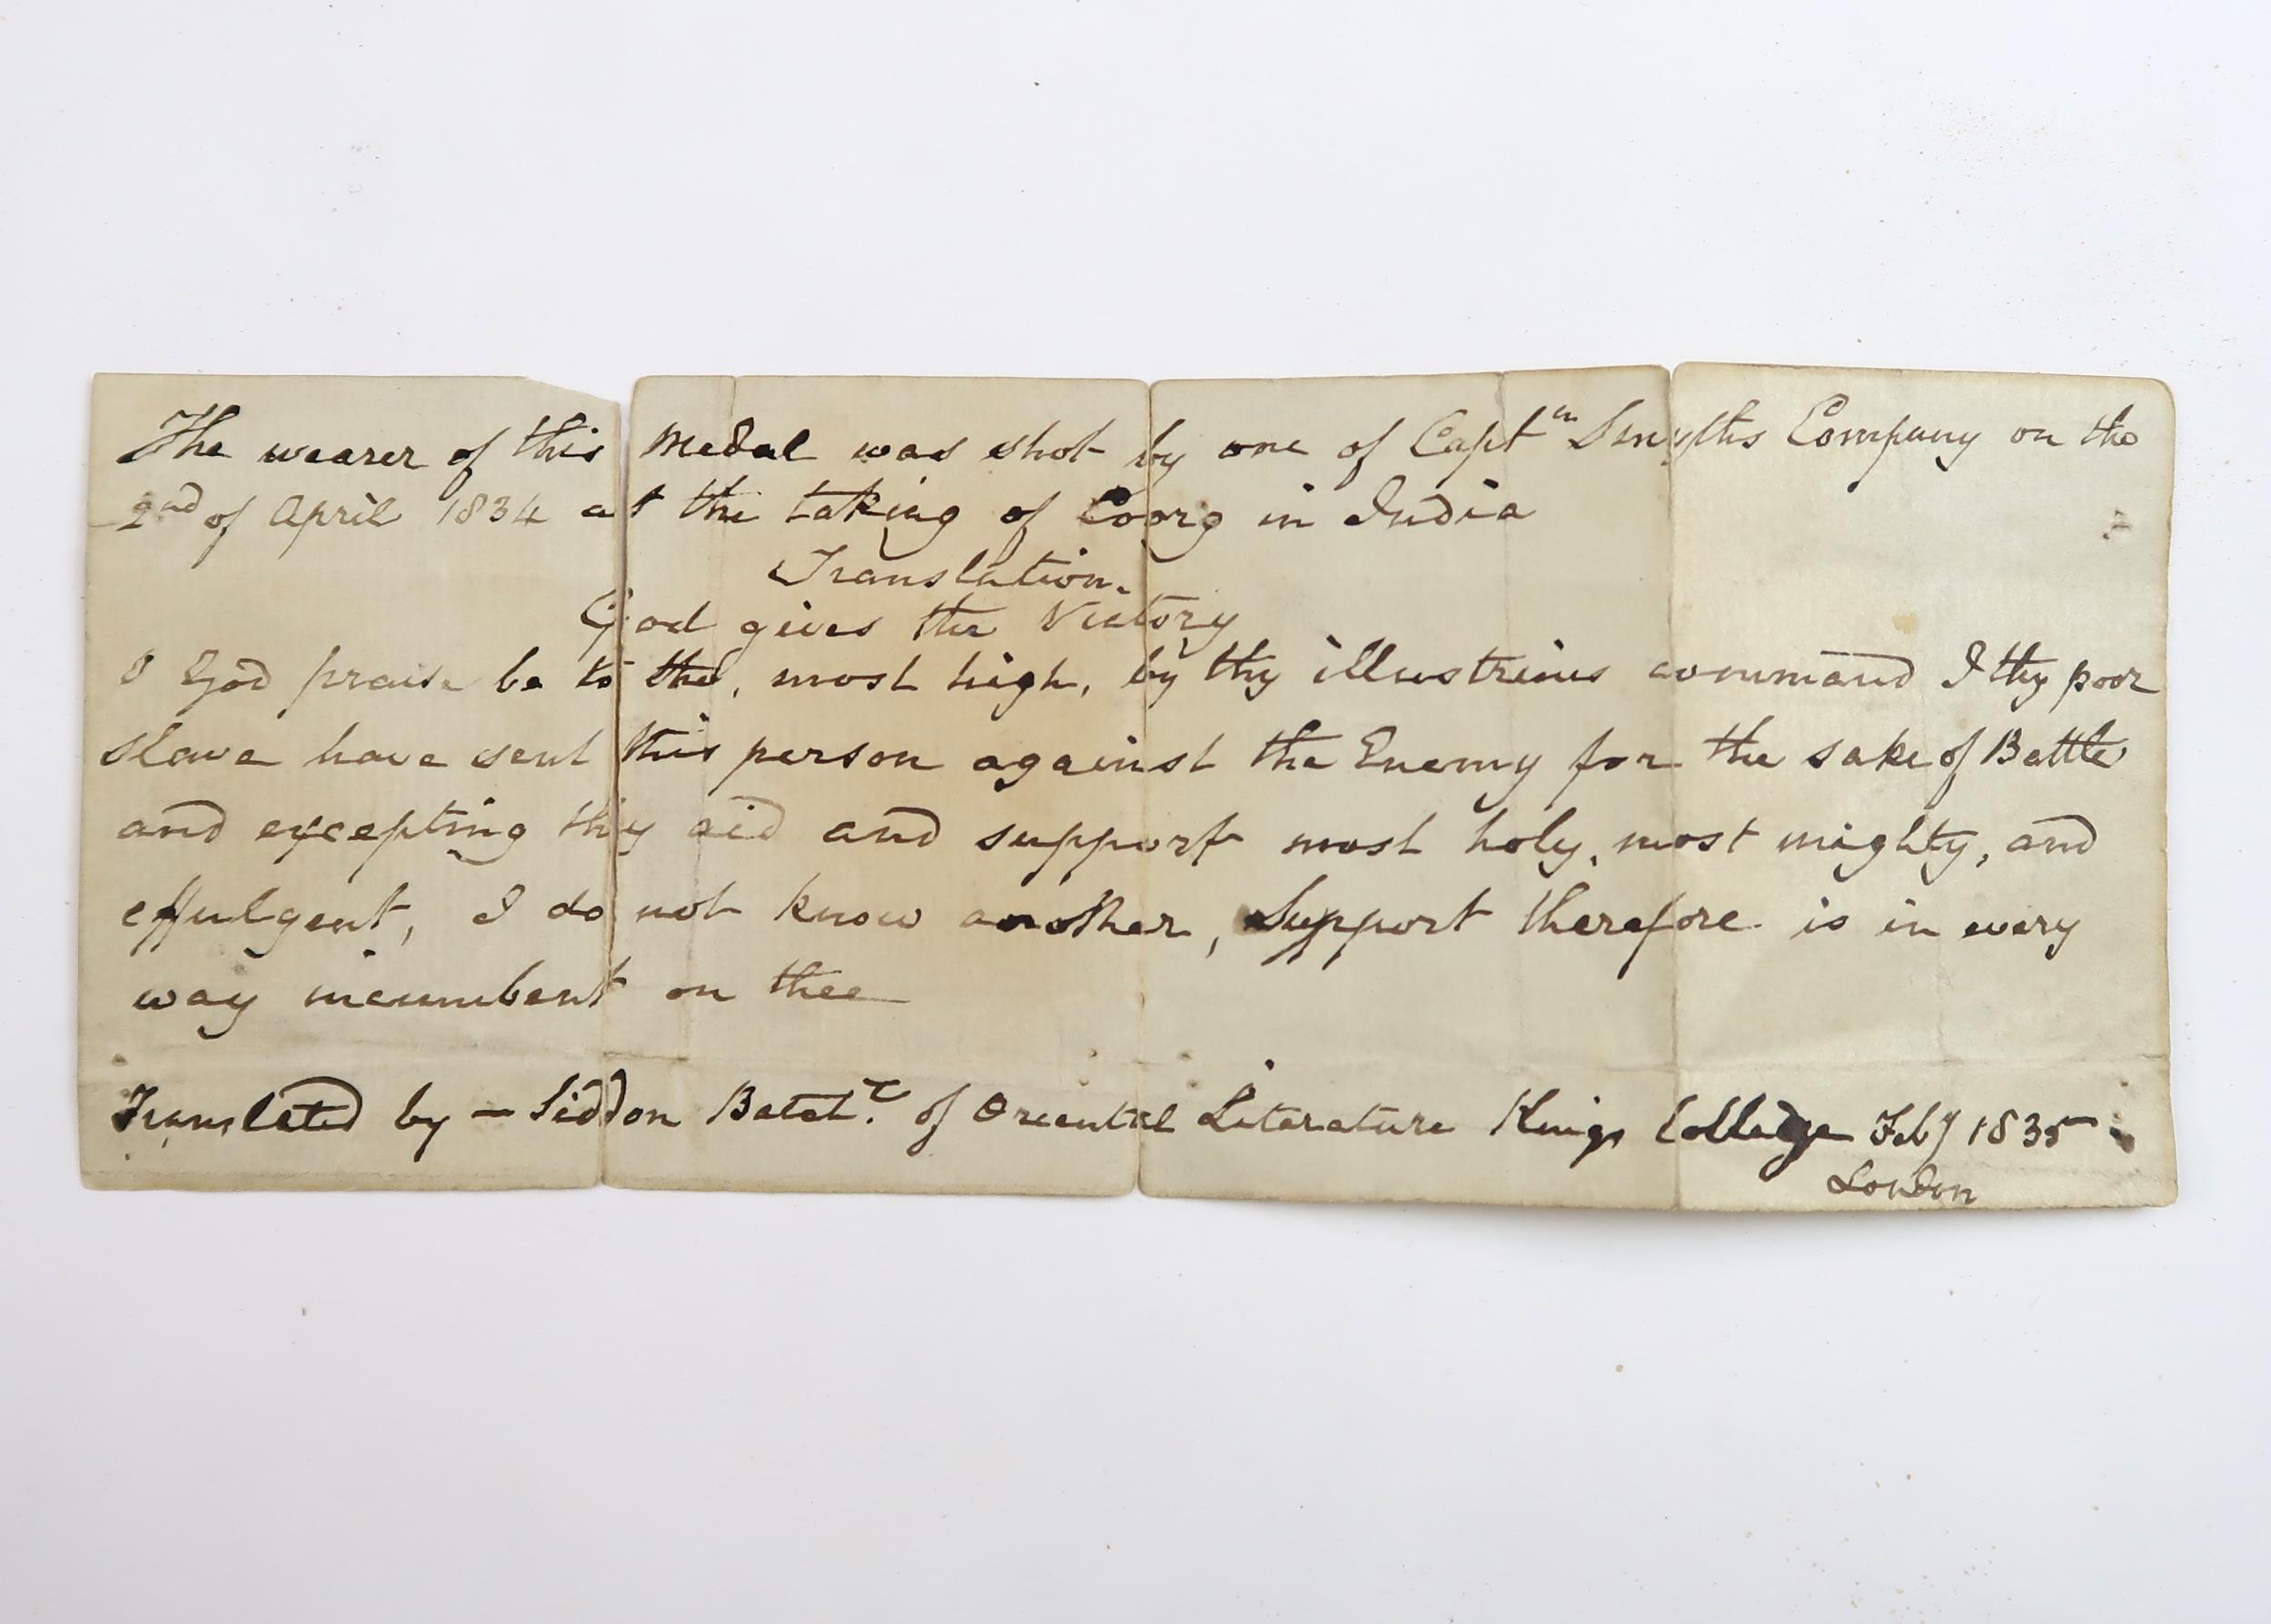 The wearer of this Medal was shot by one of Captn Smyths Company on the
2nd of April 1834 at the taking of Coorg in India
Translation.
God gives the Victory
O God praise be to the, most high, by thy illustrious command I thy poor
slave have sent this person against the Enemy for the sake of Battle
and excepting thy aid and support most holy, most mighty, and
effulgent, I do not know another, Support therefore is in every
way incumbent on thee
Translated by — Siddon of Oriental Literature Kings Colledge Feby 1835
London